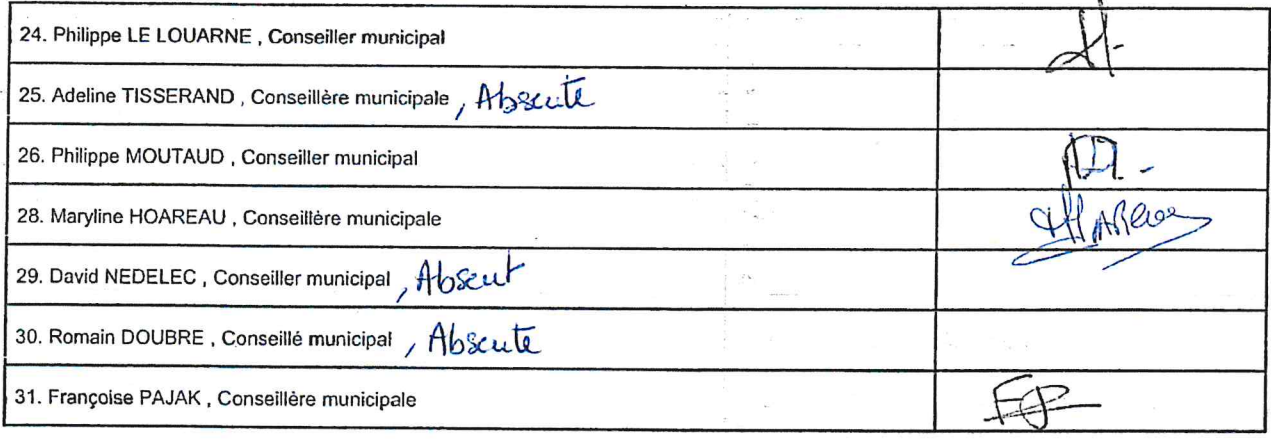 24. Philippe LE LOUARNE , Conseiller municipal
25. Adeline TISSERAND , Conseillère municipale , Absente
26. Philippe MOUTAUD , Conseiller municipal
28. Maryline HOAREAU , Conseillère municipale
29. David NEDELEC , Conseiller municipal , Absent
30. Romain DOUBRE , Conseillé municipal , Absente
31. Françoise PAJAK , Conseillère municipale